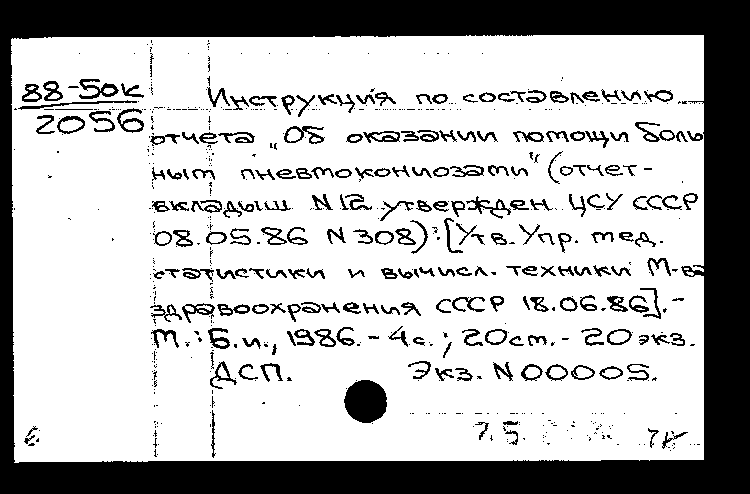 88-50к
2056
Инструкция по составлению
отчета „Об оказании помощи боль
ным пневмокониозами" (отчет-
вкладыш N 12 утвержден ЦСУ СССР
08.05.86 N 308): [Утв. Упр. мед.
статистики и вычисл. техники М-ва
здравоохранения СССР 18.06.86].-
М.: Б.и., 1986. - 4с.; 20см. - 20 экз.
ДСП. Экз. N 00005.
б
7.5.